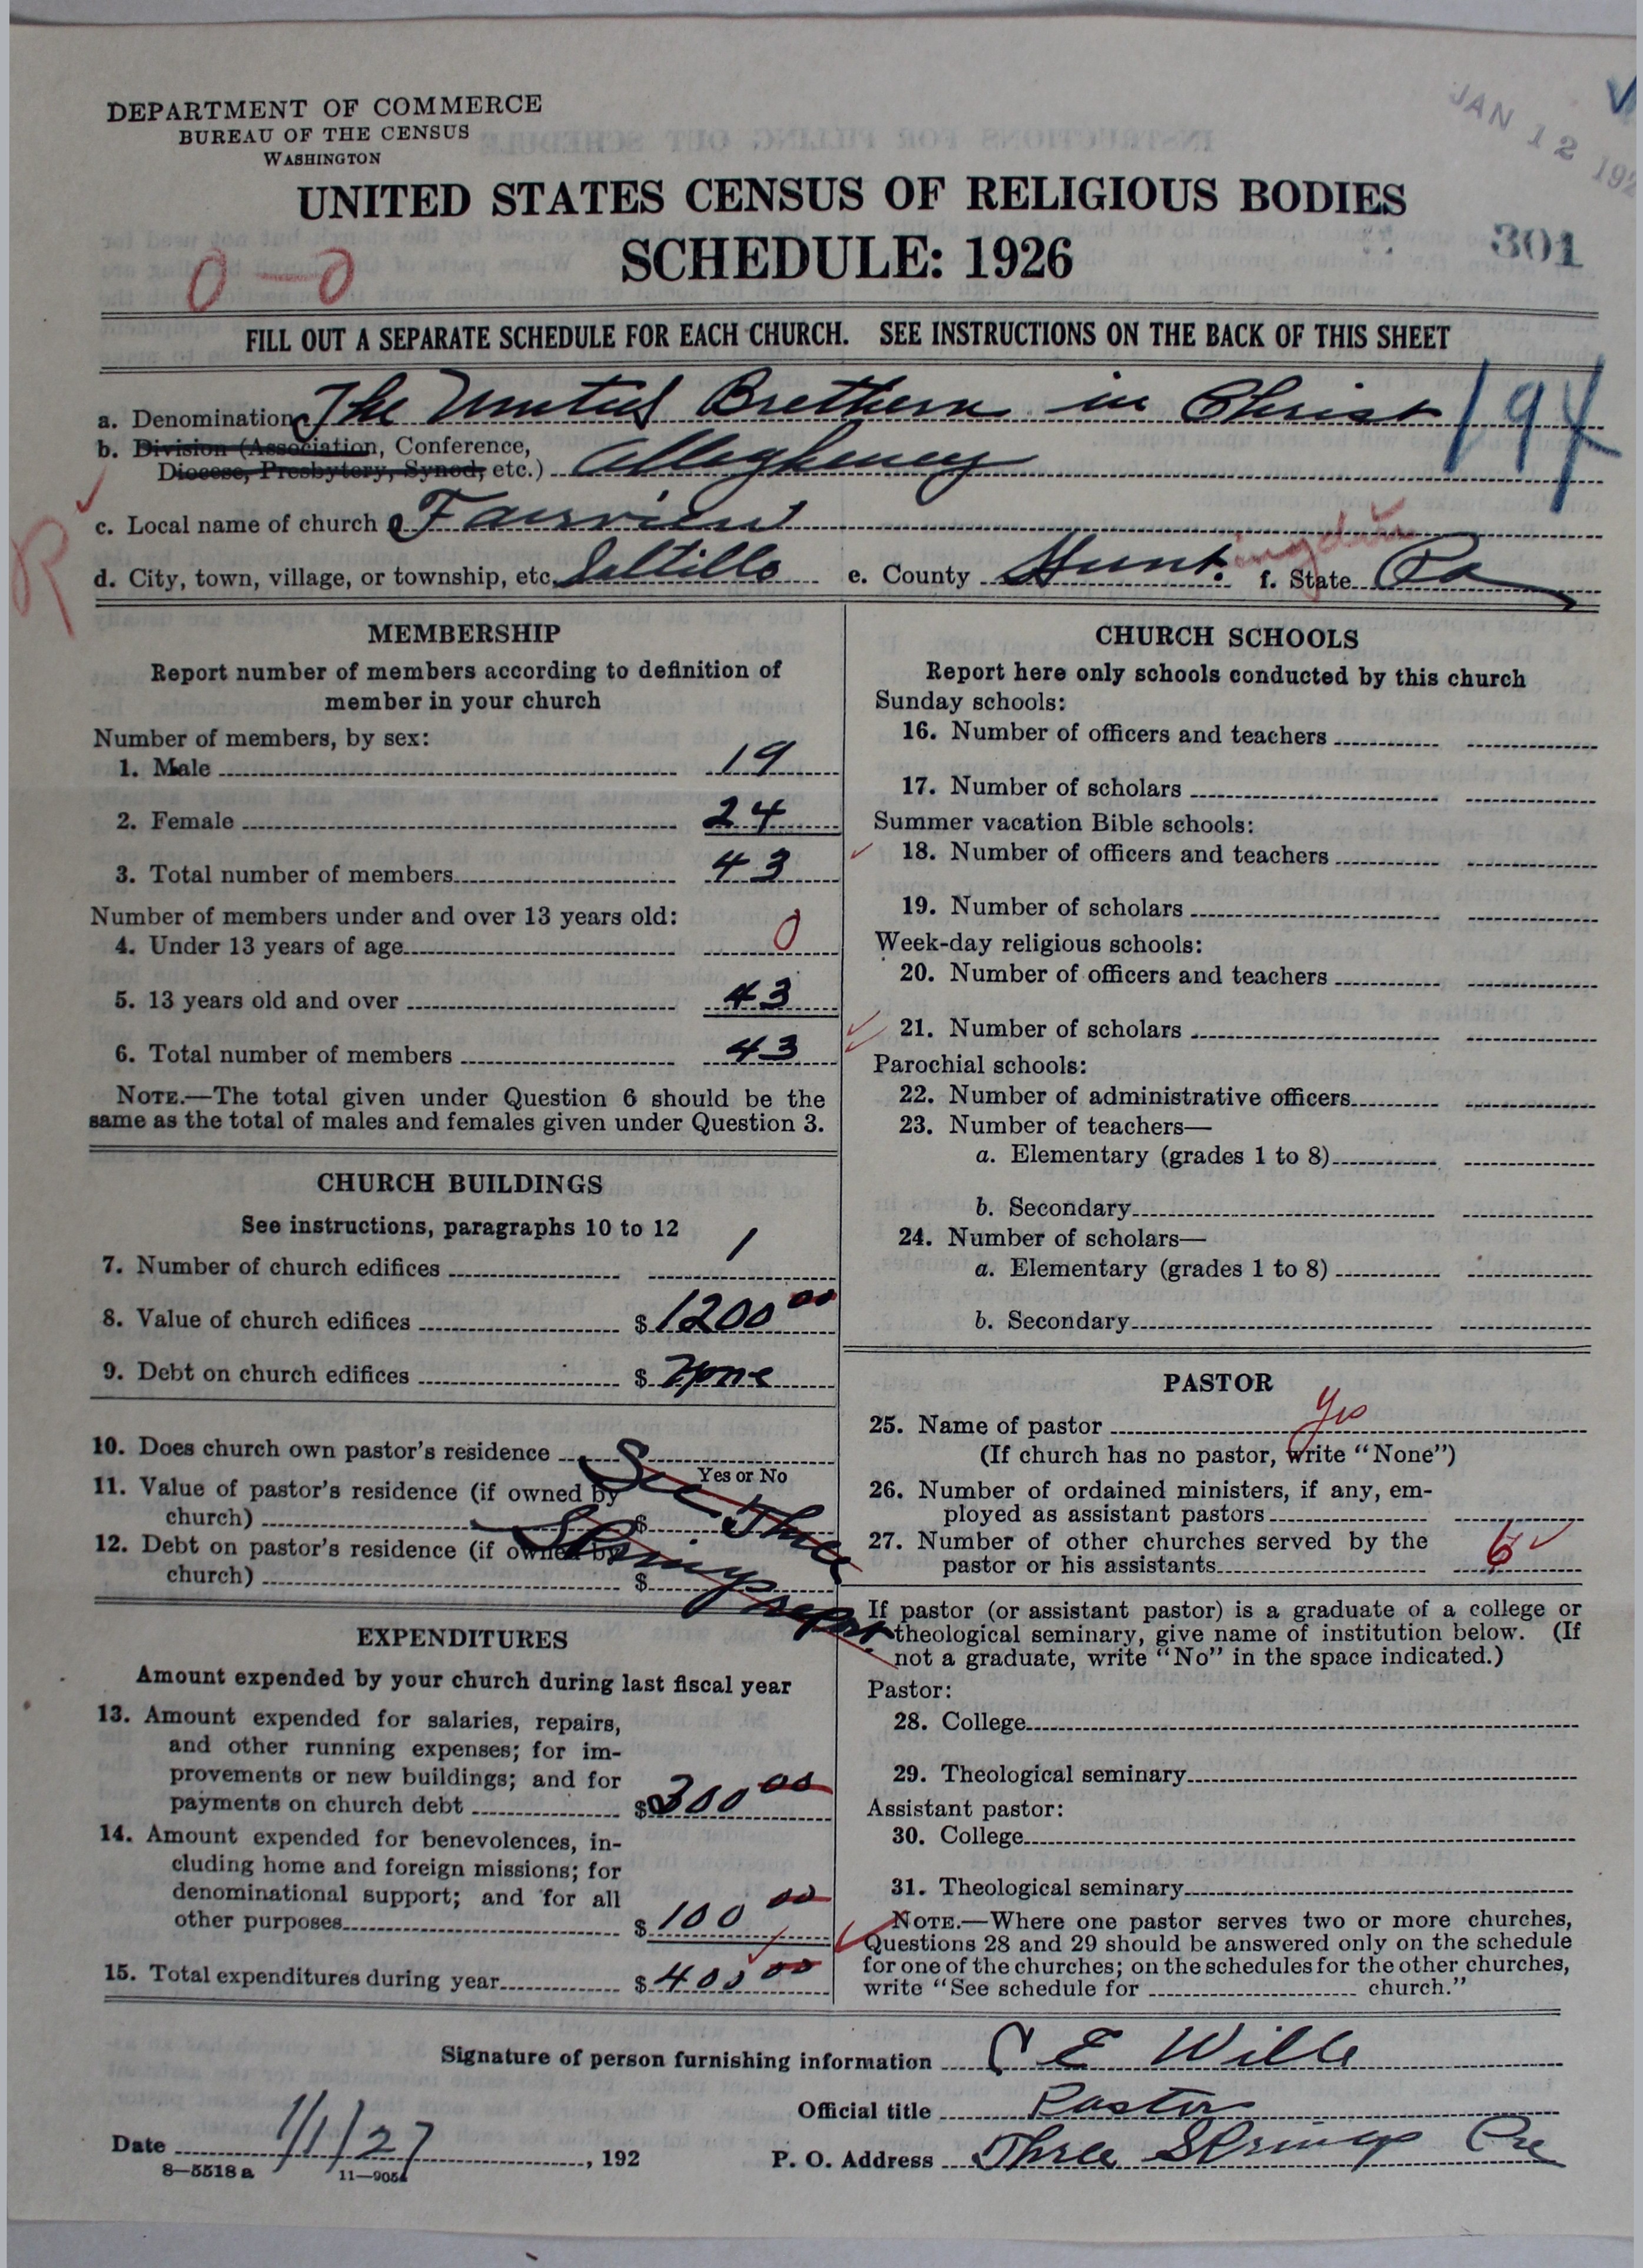 DEPARTMENT OF COMMERCE
BUREAU OF THE CENSUS
WASHINGTON
JAN 12 192
UNITED STATES CENSUS OF RELIGIOUS BODIES
SCHEDULE: 1926
301
0-0
FILL OUT A SEPARATE SCHEDULE FOR EACH CHURCH. SEE INSTRUCTIONS ON THE BACK OF THIS SHEET
a. Denomination The United Brethern in Christ
194
b. Division (Association, Conference,
Diocese, Presbytery, Synod, etc.) Allegheney
c. Local name of church Fairview
R
d. City, town, village, or township, etc. Saltillo e. County Hunt.ingdon f. State Pa
MEMBERSHIP
Report number of members according to definition of
member in your church
Number of members, by sex:
1. Male 19
2. Female 24
3. Total number of members 43
Number of members under and over 13 years old:
4. Under 13 years of age 0
5. 13 years old and over 43
6. Total number of members 43
NOTE.—The total given under Question 6 should be the
same as the total of males and females given under Question 3.
CHURCH BUILDINGS
See instructions, paragraphs 10 to 12
7. Number of church edifices 1
8. Value of church edifices $1200 00
9. Debt on church edifices $ None
10. Does church own pastor's residence See
Yes or No
11. Value of pastor's residence (if owned by
church) $ Three
12. Debt on pastor's residence (if owned by
church) $ Springs report
EXPENDITURES
Amount expended by your church during last fiscal year
13. Amount expended for salaries, repairs,
and other running expenses; for im-
provements or new buildings; and for
payments on church debt $300 00
14. Amount expended for benevolences, in-
cluding home and foreign missions; for
denominational support; and for all
other purposes $100 00
15. Total expenditures during year $400 00
CHURCH SCHOOLS
Report here only schools conducted by this church
Sunday schools:
16. Number of officers and teachers
17. Number of scholars
Summer vacation Bible schools:
18. Number of officers and teachers
19. Number of scholars
Week-day religious schools:
20. Number of officers and teachers
21. Number of scholars
Parochial schools:
22. Number of administrative officers
23. Number of teachers—
a. Elementary (grades 1 to 8)
b. Secondary
24. Number of scholars—
a. Elementary (grades 1 to 8)
b. Secondary
PASTOR
25. Name of pastor yes
(If church has no pastor, write "None")
26. Number of ordained ministers, if any, em-
ployed as assistant pastors
27. Number of other churches served by the
pastor or his assistants 6
If pastor (or assistant pastor) is a graduate of a college or
theological seminary, give name of institution below. (If
not a graduate, write "No" in the space indicated.)
Pastor:
28. College
29. Theological seminary
Assistant pastor:
30. College
31. Theological seminary
NOTE.—Where one pastor serves two or more churches,
Questions 28 and 29 should be answered only on the schedule
for one of the churches; on the schedules for the other churches,
write "See schedule for church."
Signature of person furnishing information C E Wille
Official title Pastor
Date 1/1/27, 192
P. O. Address Three Springs Pa
8—5518 a 11—9054